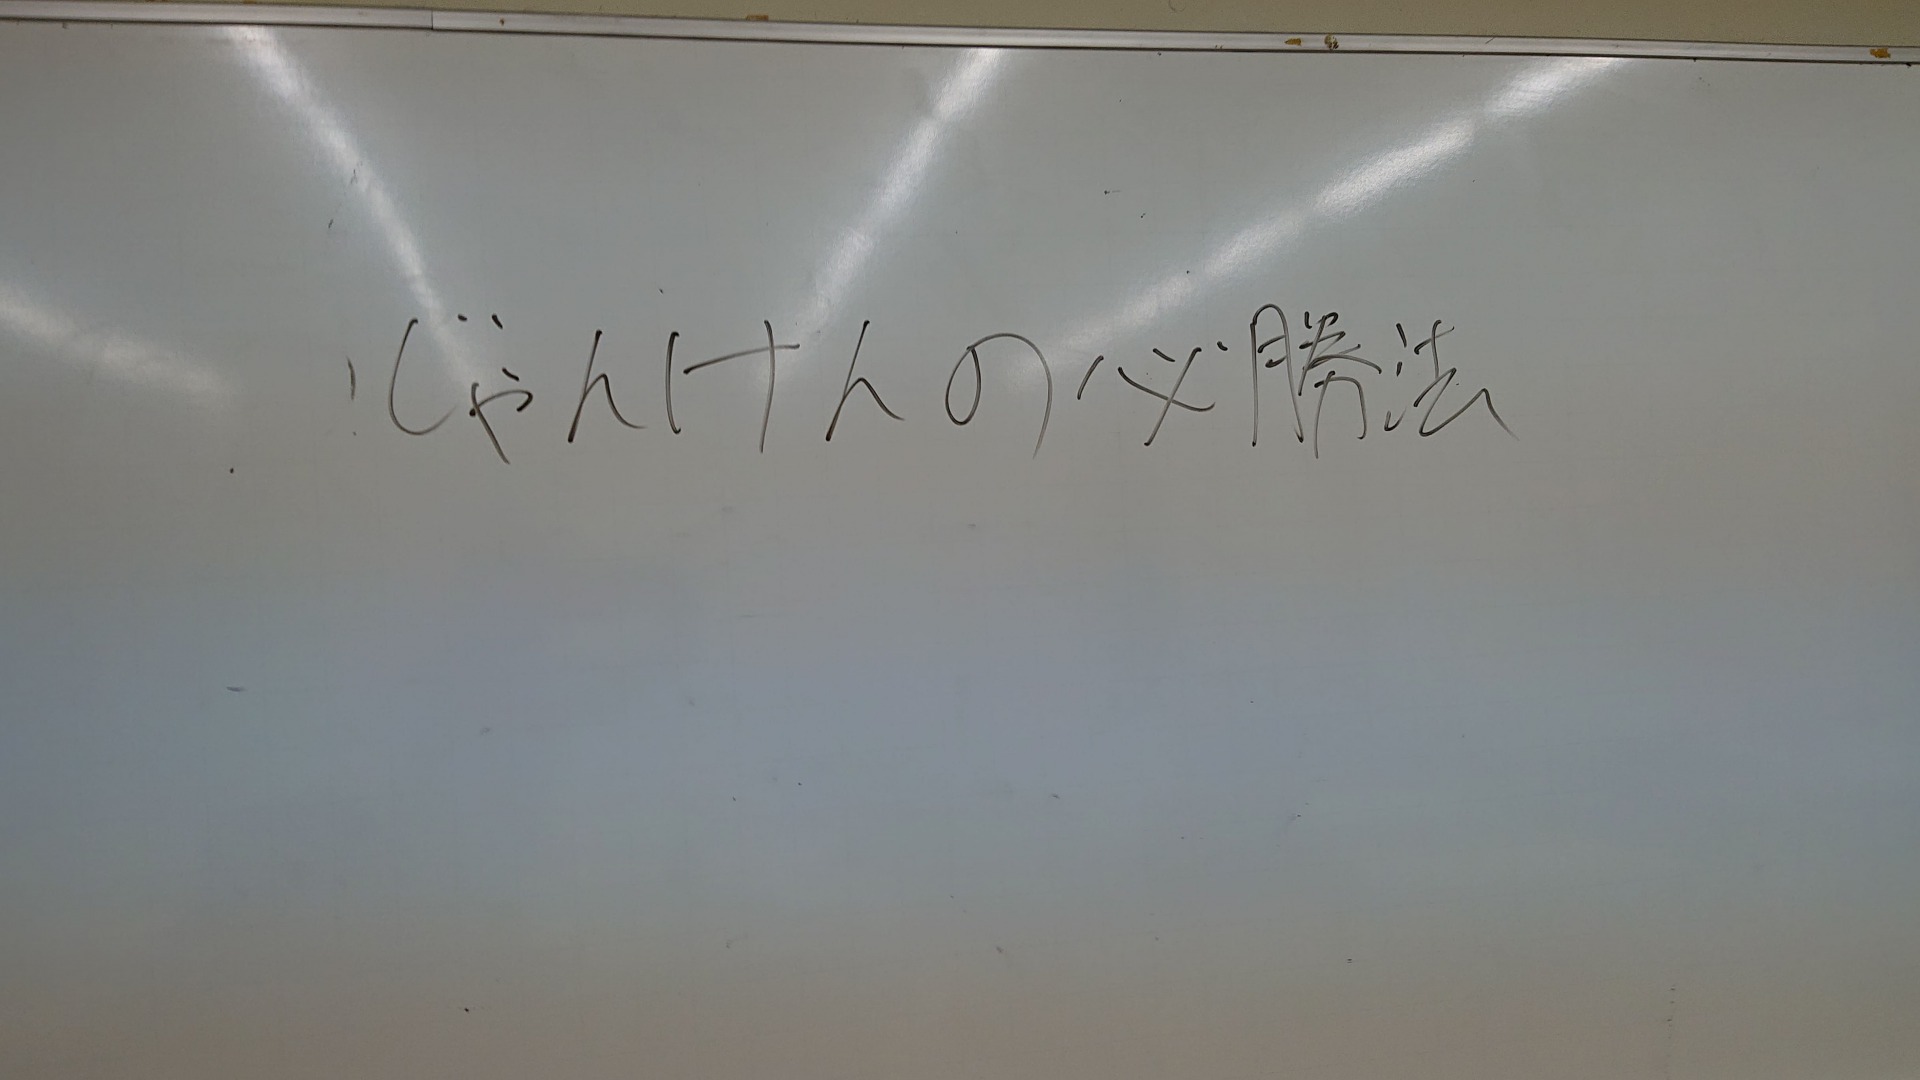 じゃんけんの必勝法